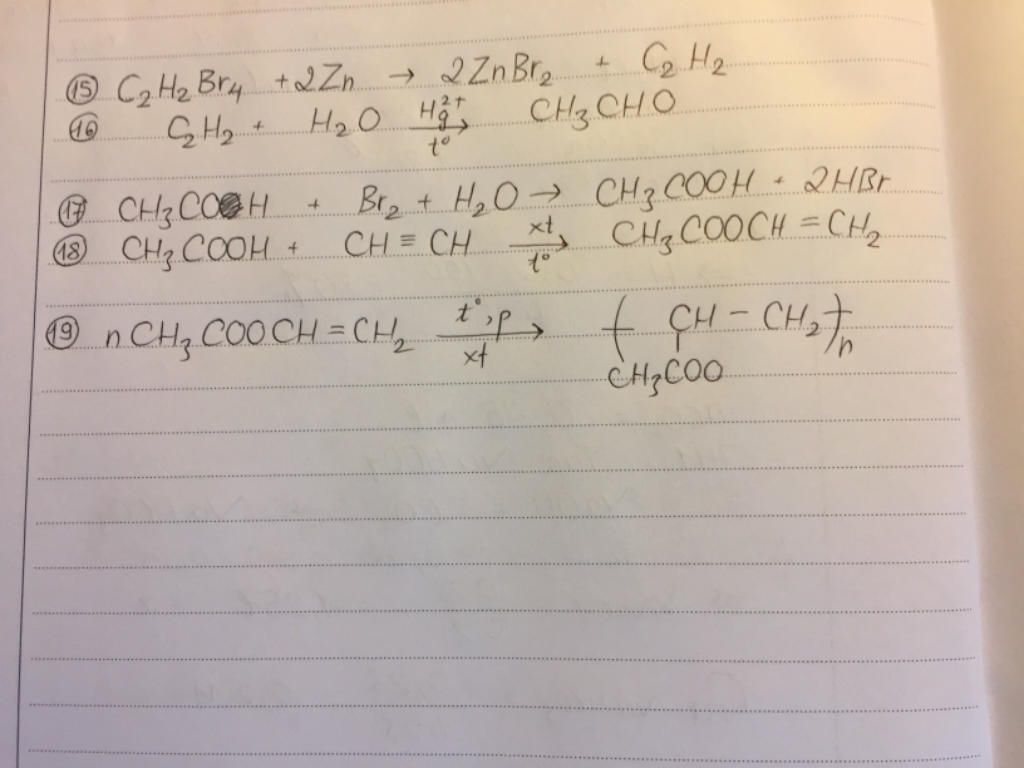 ⑮ C₂H₂Br₄ + 2Zn → 2ZnBr₂ + C₂H₂
⑯ C₂H₂ + H₂O Hg²⁺ → t° CH₃CHO
⑰ CH₃COH + Br₂ + H₂O → CH₃COOH + 2HBr
⑱ CH₃COOH + CH ≡ CH xt → t° CH₃COOCH = CH₂
⑲ nCH₃COOCH = CH₂ t°, p → xt ( CH – CH₂ )n
CH₃COO